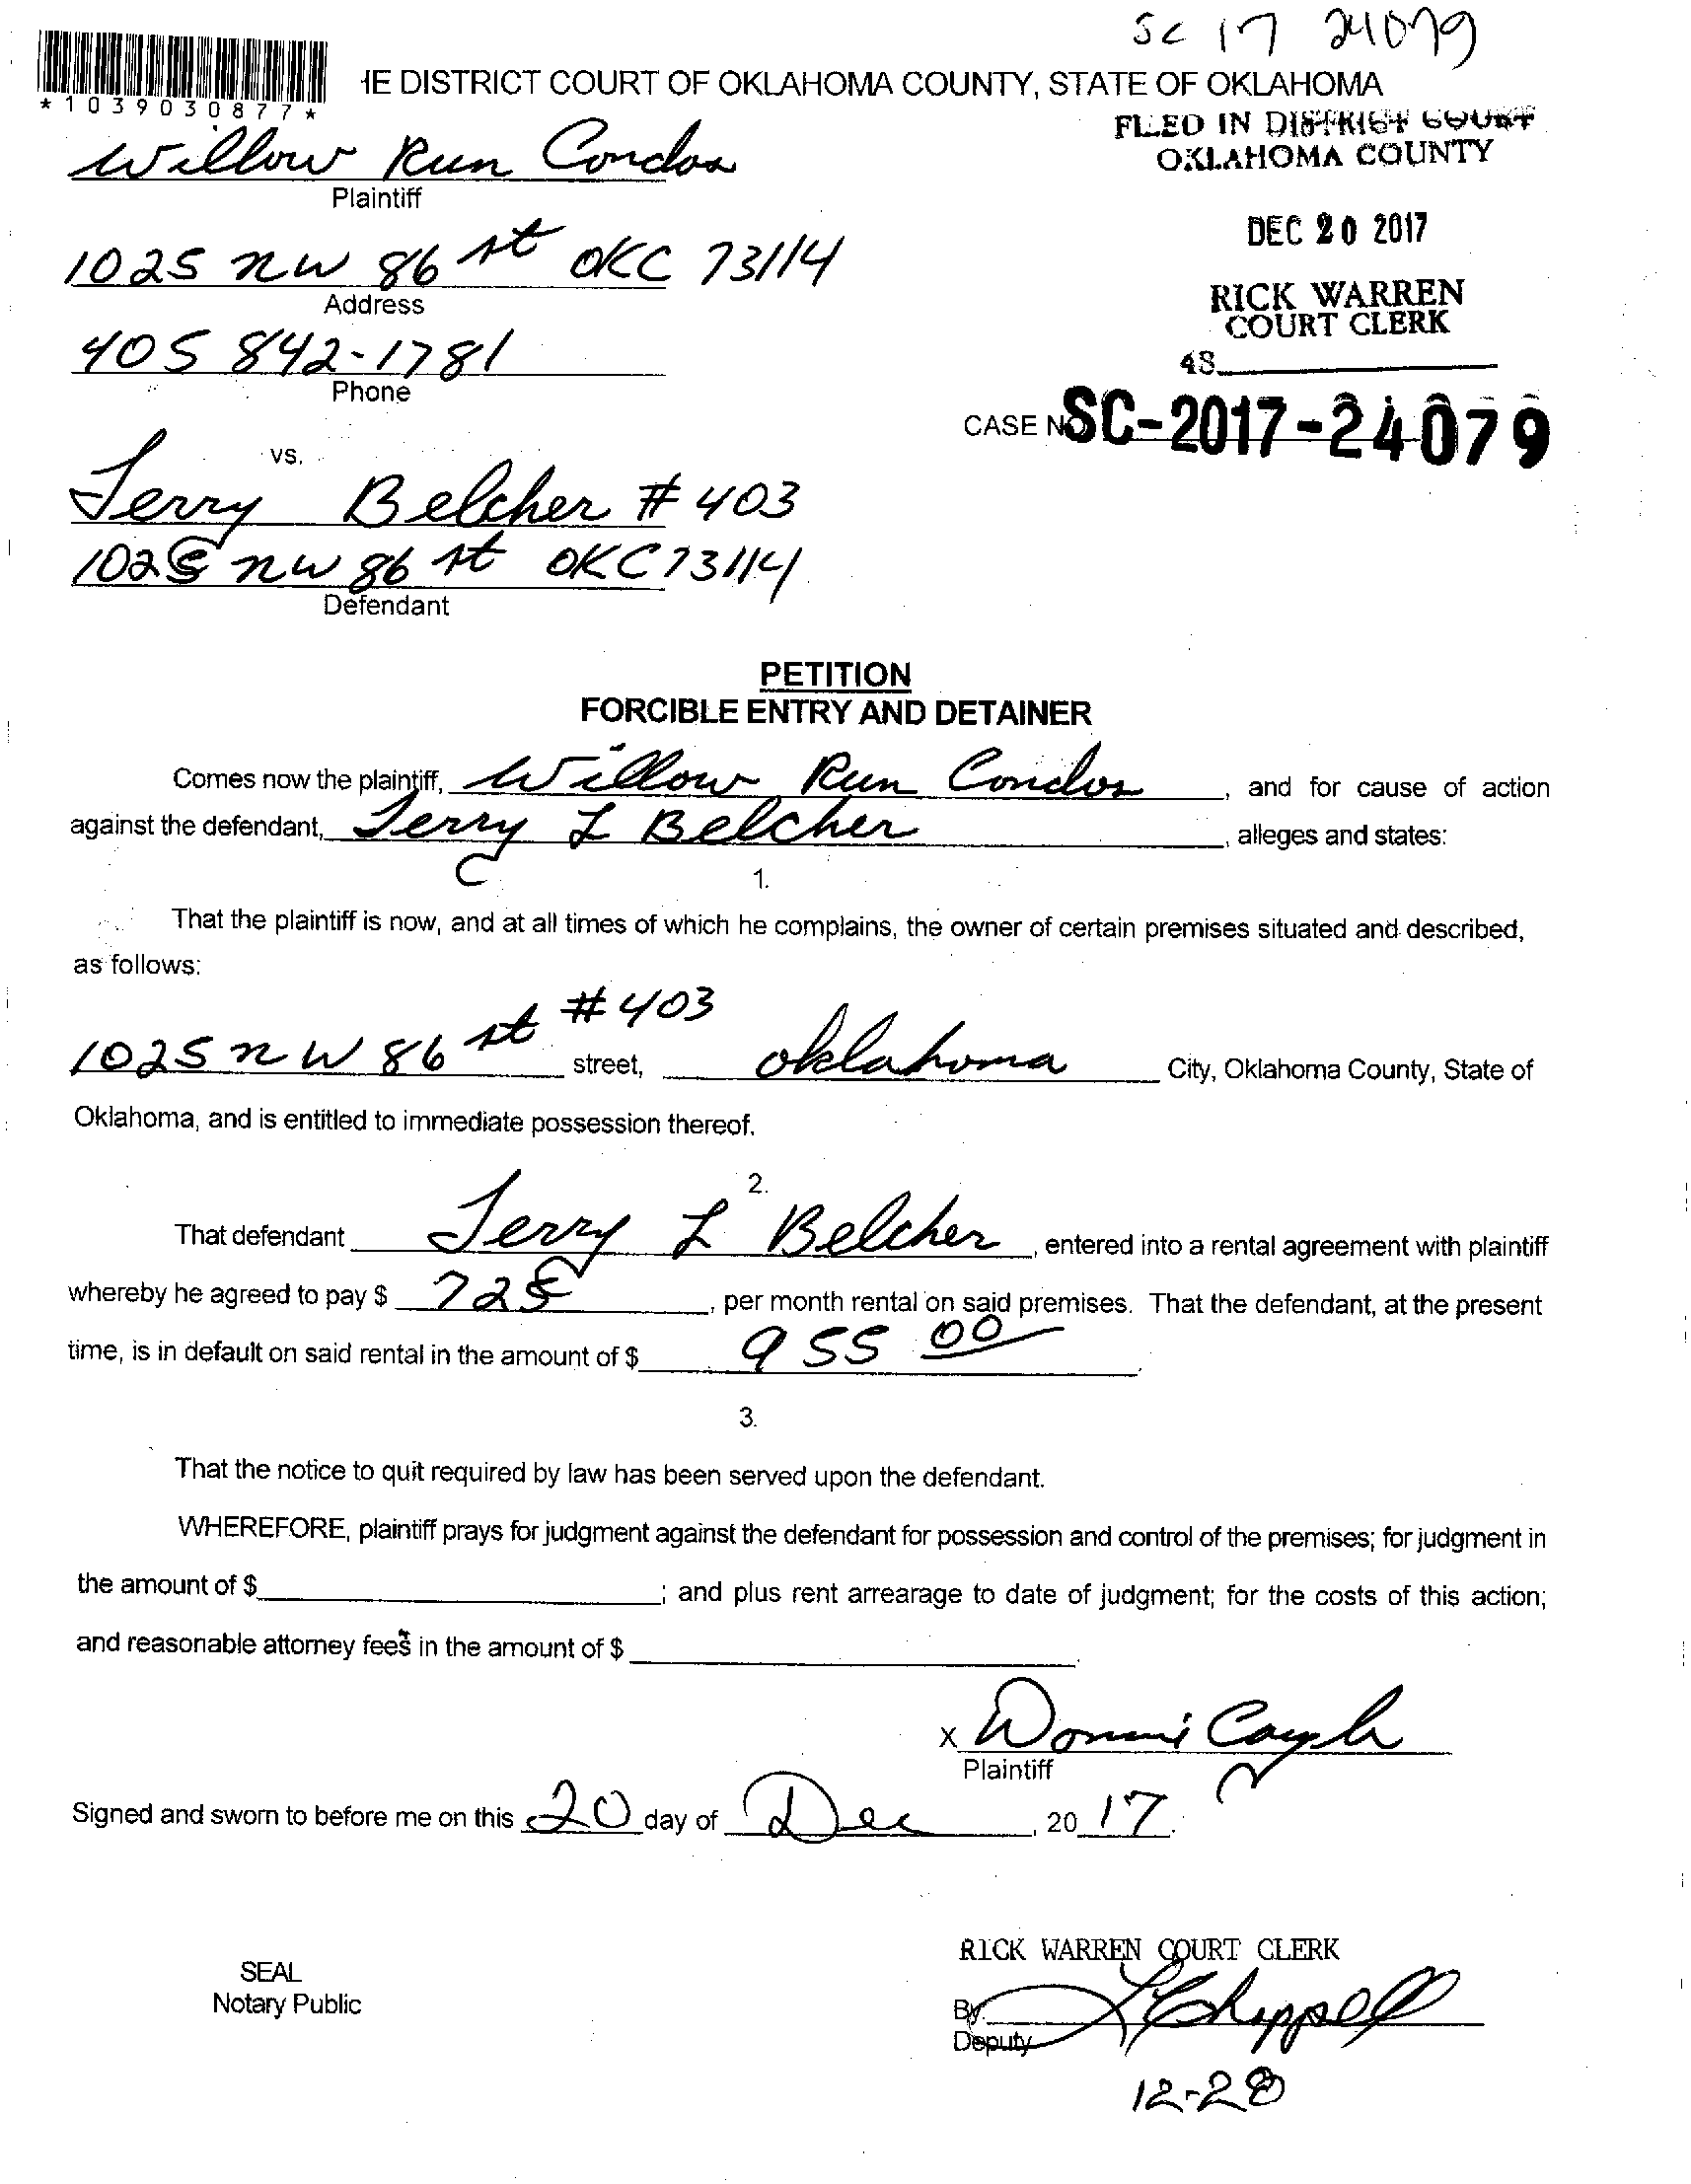 SC 17 24079
*1039030877*
IE DISTRICT COURT OF OKLAHOMA COUNTY, STATE OF OKLAHOMA
FILED IN DISTRICT COURT
OKLAHOMA COUNTY
Willow Run Condos
Plaintiff
DEC 20 2017
1025 NW 86 st OKC 73114
Address
RICK WARREN
COURT CLERK
405 842-1781
Phone
48
CASE NO SC-2017-24079
vs.
Jerry Belcher # 403
1025 NW 86 st OKC 73114
Defendant
PETITION
FORCIBLE ENTRY AND DETAINER
Comes now the plaintiff, Willow Run Condos, and for cause of action
against the defendant, Jerry L Belcher, alleges and states:
1.
That the plaintiff is now, and at all times of which he complains, the owner of certain premises situated and described,
as follows:
1025 NW 86 st #403 street, Oklahoma City, Oklahoma County, State of
Oklahoma, and is entitled to immediate possession thereof.
2.
That defendant Jerry L Belcher, entered into a rental agreement with plaintiff
whereby he agreed to pay $ 725, per month rental on said premises. That the defendant, at the present
time, is in default on said rental in the amount of $ 955 00.
3.
That the notice to quit required by law has been served upon the defendant.
WHEREFORE, plaintiff prays for judgment against the defendant for possession and control of the premises; for judgment in
the amount of $ ; and plus rent arrearage to date of judgment; for the costs of this action;
and reasonable attorney fees in the amount of $ .
X
Plaintiff
Signed and sworn to before me on this 20 day of Dec, 20 17.
RICK WARREN COURT CLERK
SEAL
Notary Public
By: L Chappell
Deputy
12-28